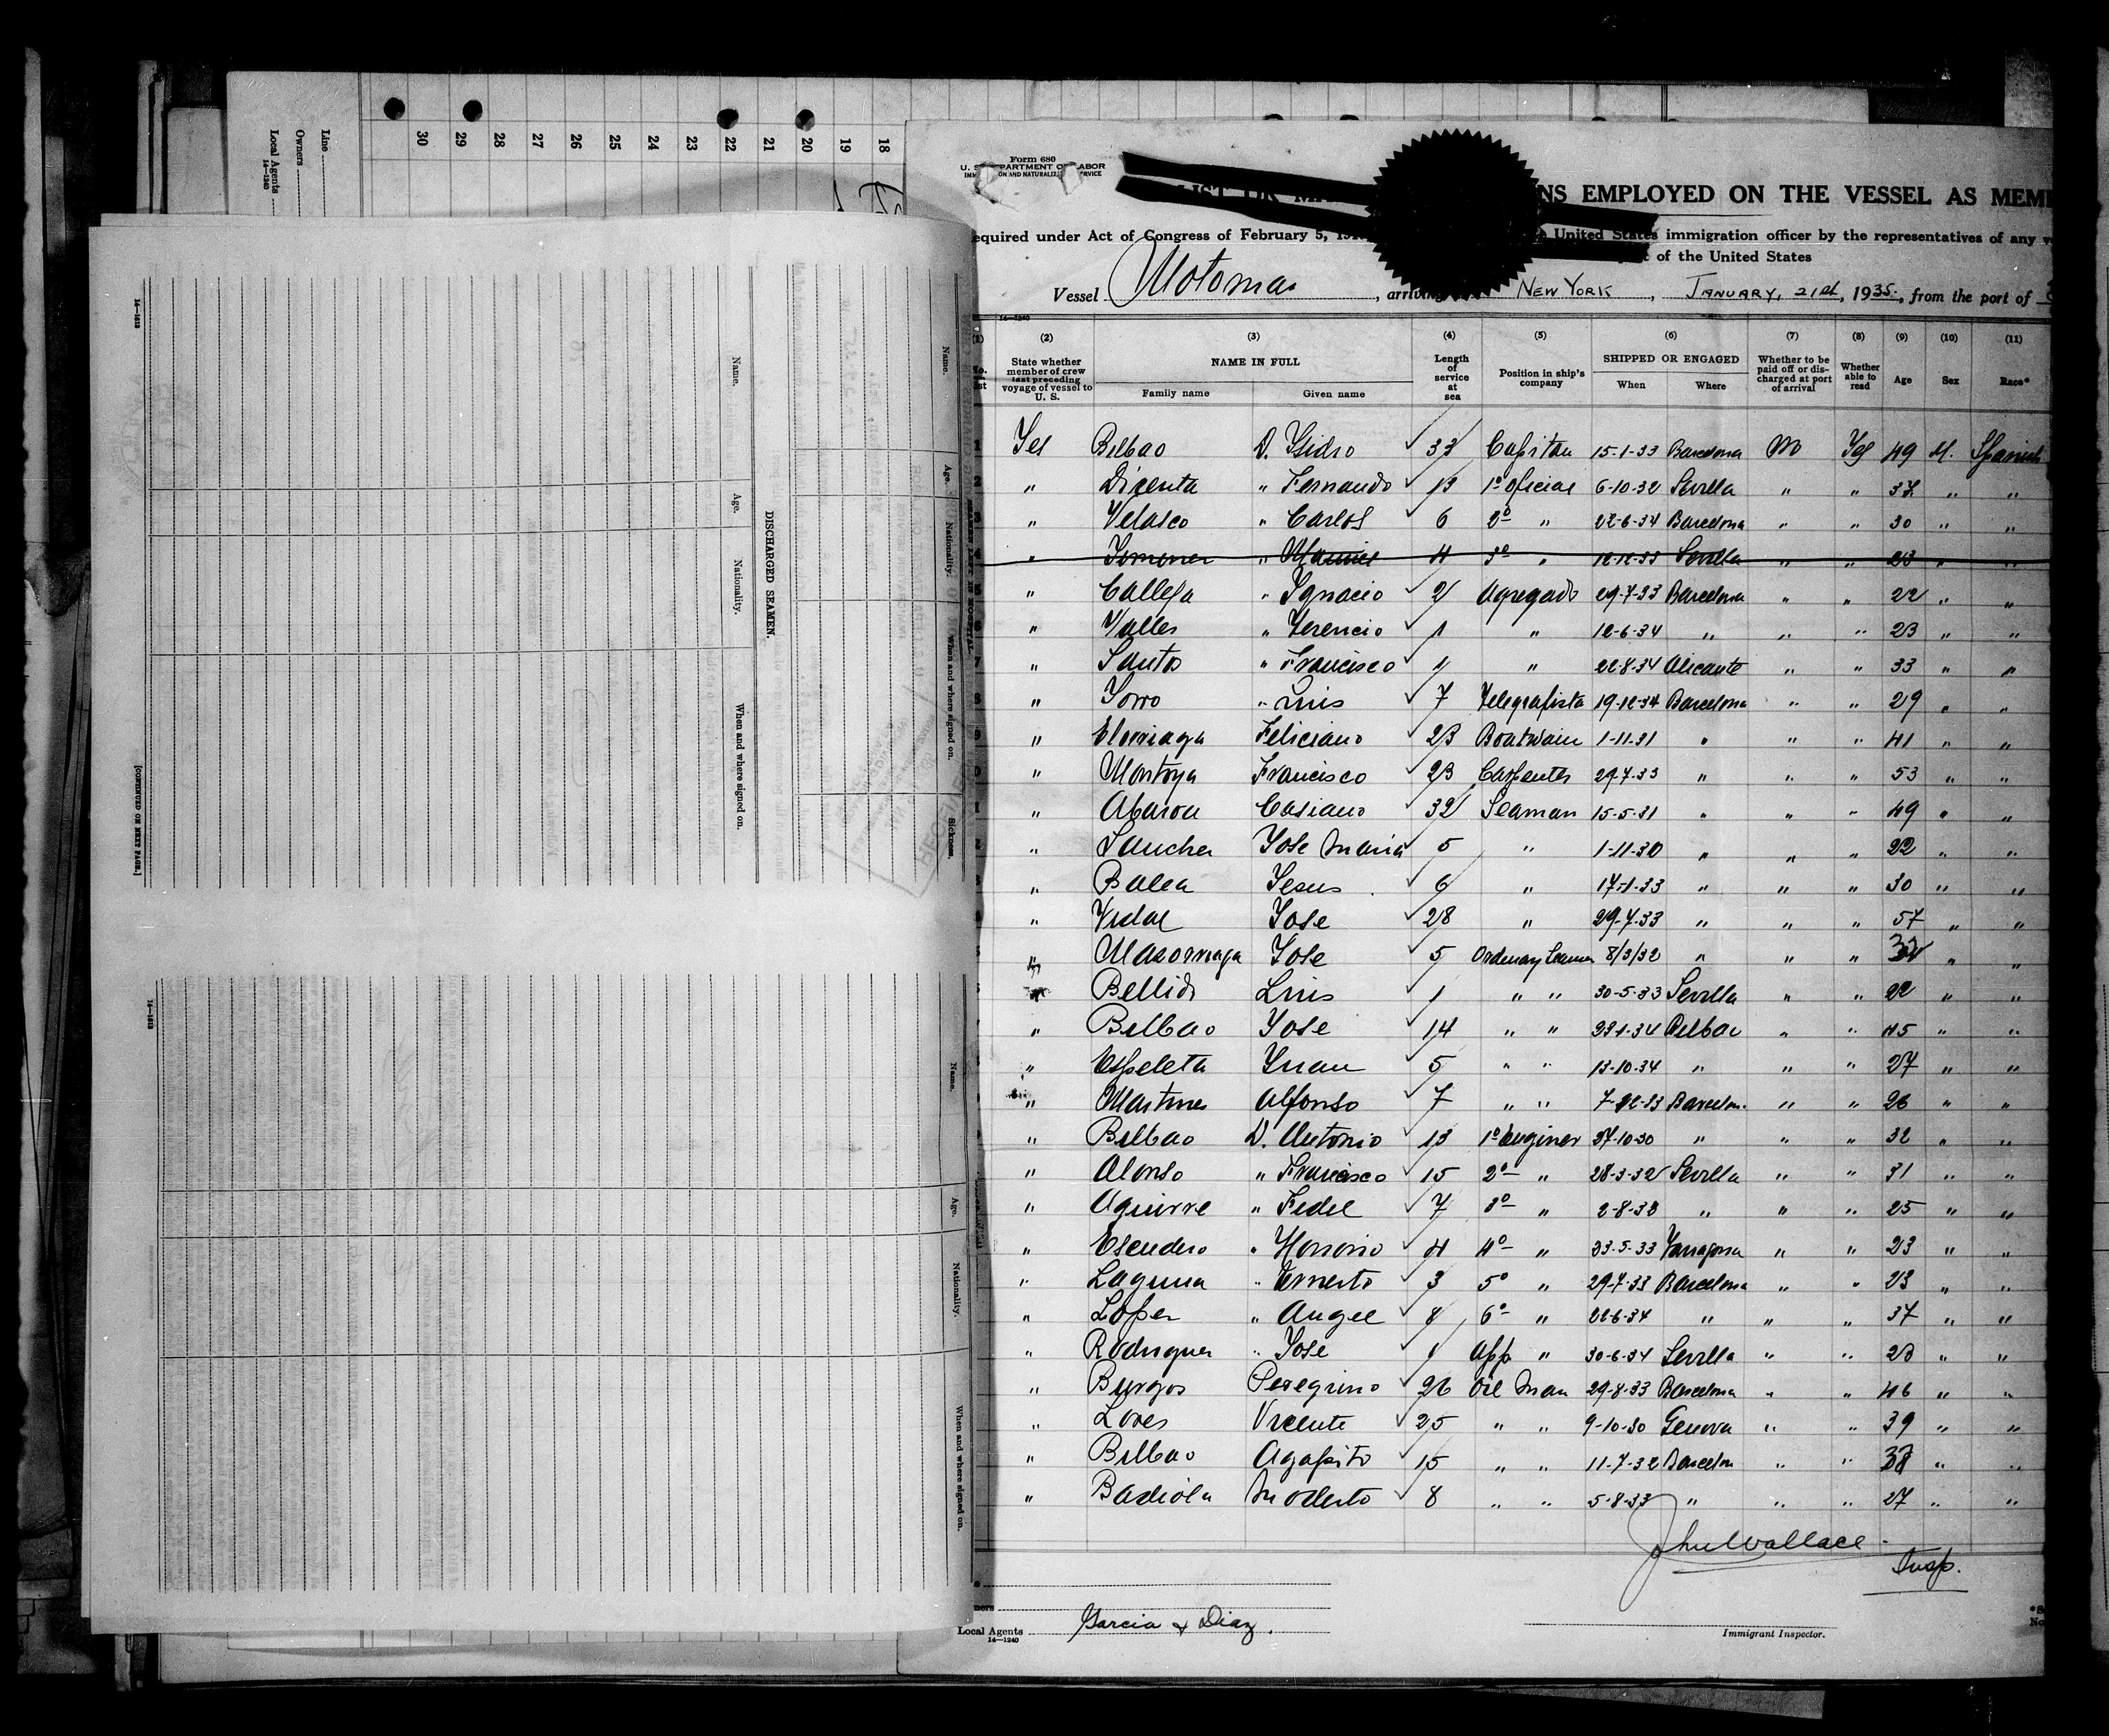 Line
Owners
Local Agents
14—1240
30 29 28 27 26 25 24 23 22 21 20 19 18
Name.
Age.
Nationality.
When and where signed on.
Sickness.
DISCHARGED SEAMEN.
Name.
Age.
Nationality.
When and where signed on.
14—1613
[CONTINUED ON NEXT PAGE.]
Name.
Age.
Nationality.
When and where signed on.
14—1613
Form 680
U. S. DEPARTMENT OF LABOR
NS EMPLOYED ON THE VESSEL AS MEM
equired under Act of Congress of February 5, United States immigration officer by the representatives of any
of the United States
Vessel Motomar, arriving NEW YORK, JANUARY, 21st, 1935, from the port of
14—1240
(1) (2) (3) (4) (5) (6) (7) (8) (9) (10) (11)
State whether member of crew last preceding voyage of vessel to U. S. NAME IN FULL Family name Given name Length of service at sea Position in ship's company SHIPPED OR ENGAGED When Where Whether to be paid off or discharged at port of arrival Whether able to read Age Sex Race*
1 Yes Bilbao D. Ysidro 33 Capitan 15-1-33 Barcelona No Yes 49 M. Spanish
2 " Dicenta " Fernando 13 1º oficial 6-10-32 Sevilla " " 37 " "
3 " Velasco " Carlos 6 2º " 22-6-34 Barcelona " " 30 " "
4 " Jimenez " Manuel 4 3º " 12-12-33 Sevilla " " 23 " "
5 " Calleja " Ygnacio 2 Agregado 29-7-33 Barcelona " " 22 " "
6 " Valles " Terencio 1 " 12-6-34 " " " 23 " "
7 " Santos " Francisco 1 " 22-8-34 Alicante " " 33 " "
8 " Yorro " Luis 7 Telegrafista 19-12-34 Barcelona " " 29 " "
9 " Elorriaga Feliciano 23 Boatswain 1-11-31 " " " 41 " "
0 " Montoya Francisco 23 Carpenter 29-7-33 " " " 53 " "
1 " Abaroa Casiano 32 Seaman 15-5-31 " " " 49 " "
2 " Sanchez Jose Maria 5 " 1-11-30 " " " 22 " "
" Balea Jesus 6 " 17-1-33 " " " 30 " "
" Vidal Jose 28 " 29-7-33 " " " 57 " "
" Mazorriaga Jose 5 Ordenary Seaman 8/3/32 " " " " "
" Bellido Luis 1 " " 30-5-33 Sevilla " " 22 " "
" Bilbao Jose 14 " " 23-1-34 Bilbao " " 45 " "
" Espeleta Juan 5 " " 13-10-34 " " " 27 " "
" Martinez Alfonso 7 " " 7-12-33 Barcelon. " " 26 " "
" Bilbao D. Antonio 13 1º Enginer 27-10-30 " " " 32 " "
" Alonso " Francisco 15 2º " 28-3-32 Sevilla " " 31 " "
" Aguirre " Fidel 7 3º " 2-8-32 " " " 25 " "
" Escudero " Honorio 4 4º " 23-5-33 Tarragona " " 23 " "
" Laguna " Ernesto 3 5º " 29-7-33 Barcelona " " 23 " "
" Lopez " Angel 8 6º " 22-6-34 " " " 37 " "
" Rodriguez " Jose 1 App " 30-6-34 Sevilla " " 23 " "
" Burgos Peregrino 26 Oil Man 29-8-33 Barcelona " " 46 " "
" Lores Vicente 25 " " 9-10-30 Genova " " 39 " "
" Bilbao Agapito 15 " " 11-7-32 Barcelon " " 38 " "
" Badiola Modesto 8 " " 5-8-33 " " " 27 " "
John Wallace
Insp.
Local Agents Garcia & Diaz.
14—1240
Immigrant Inspector.